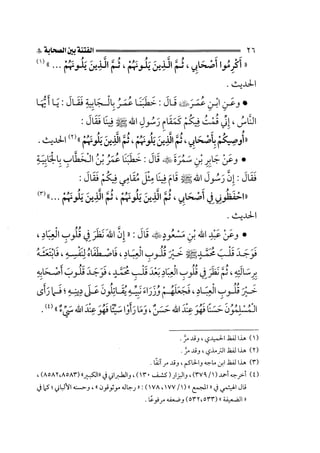 ٢٦ الفتنة بين الصحابة
« أَكْرِمُوا أَصْحَابِي ، ثُمَّ الَّذِينَ يَلُونَهُمْ ، ثُمَّ الَّذِينَ يَلُونَهُمْ ... » (١)
الحديث .
• وعَنِ ابْنِ عُمَرَ ﷺ قَالَ : خَطَبَنَا عُمَرُ بِالْجَابِيَةِ فَقَالَ : يَا أَيُّهَا
النَّاسُ ، إِنِّي قُمْتُ فِيكُمْ كَمَقَامِ رَسُولِ اللهِ ﷺ فِينَا فَقَالَ :
« أُوصِيكُمْ بِأَصْحَابِي ، ثُمَّ الَّذِينَ يَلُونَهُمْ ، ثُمَّ الَّذِينَ يَلُونَهُمْ » (٢) الحديث .
• وعَنْ جَابِرِ بْنِ سَمُرَةَ ﷺ قَالَ : خَطَبَنَا عُمَرُ بْنُ الْخَطَّابِ بِالْجَابِيَةِ
فَقَالَ : إِنَّ رَسُولَ اللهِ ﷺ قَامَ فِينَا مِثْلَ مُقَامِي فِيكُمْ فَقَالَ :
« احْفَظُونِي فِي أَصْحَابِي ، ثُمَّ الَّذِينَ يَلُونَهُمْ ، ثُمَّ الَّذِينَ يَلُونَهُمْ ... » (٣)
الحديث .
• وعَنْ عَبْدِ اللهِ بْنِ مَسْعُودٍ ﷺ قَالَ : « إِنَّ اللهَ نَظَرَ فِي قُلُوبِ الْعِبَادِ ،
فَوَجَدَ قَلْبَ مُحَمَّدٍ ﷺ خَيْرَ قُلُوبِ الْعِبَادِ ، فَاصْطَفَاهُ لِنَفْسِهِ ، فَابْتَعَثَهُ
بِرِسَالَتِهِ ، ثُمَّ نَظَرَ فِي قُلُوبِ الْعِبَادِ بَعْدَ قَلْبِ مُحَمَّدٍ ، فَوَجَدَ قُلُوبَ أَصْحَابِهِ
خَيْرَ قُلُوبِ الْعِبَادِ ، فَجَعَلَهُمْ وُزَرَاءَ نَبِيِّهِ يُقَاتِلُونَ عَلَى دِينِهِ ؛ فَمَا رَأَى
الْمُسْلِمُونَ حَسَنًا فَهُوَ عِنْدَ اللهِ حَسَنٌ ، وَمَا رَأَوْا سَيِّئًا فَهُوَ عِنْدَ اللهِ سَيِّئٌ » (٤) .
(١) هذا لفظ الحميدي ، وقد مرَّ .
(٢) هذا لفظ الترمذي ، وقد مرَّ .
(٣) هذا لفظ ابن ماجه والحاكم ، وقد مر آنفًا .
(٤) أخرجه أحمد (١/ ٣٧٩) ، والبزار (كشف ١٣٠) ، والطبراني في «الكبير» (٨٥٨٣، ٨٥٨٢) ،
قال الهيثمي في « المجمع » (١/ ١٧٧، ١٧٨) : « رجاله موثوقون » ، وحسنه الألباني ؛ كما في
« الضعيفة » (٥٣٣، ٥٣٢) وضعفه مرفوعًا .